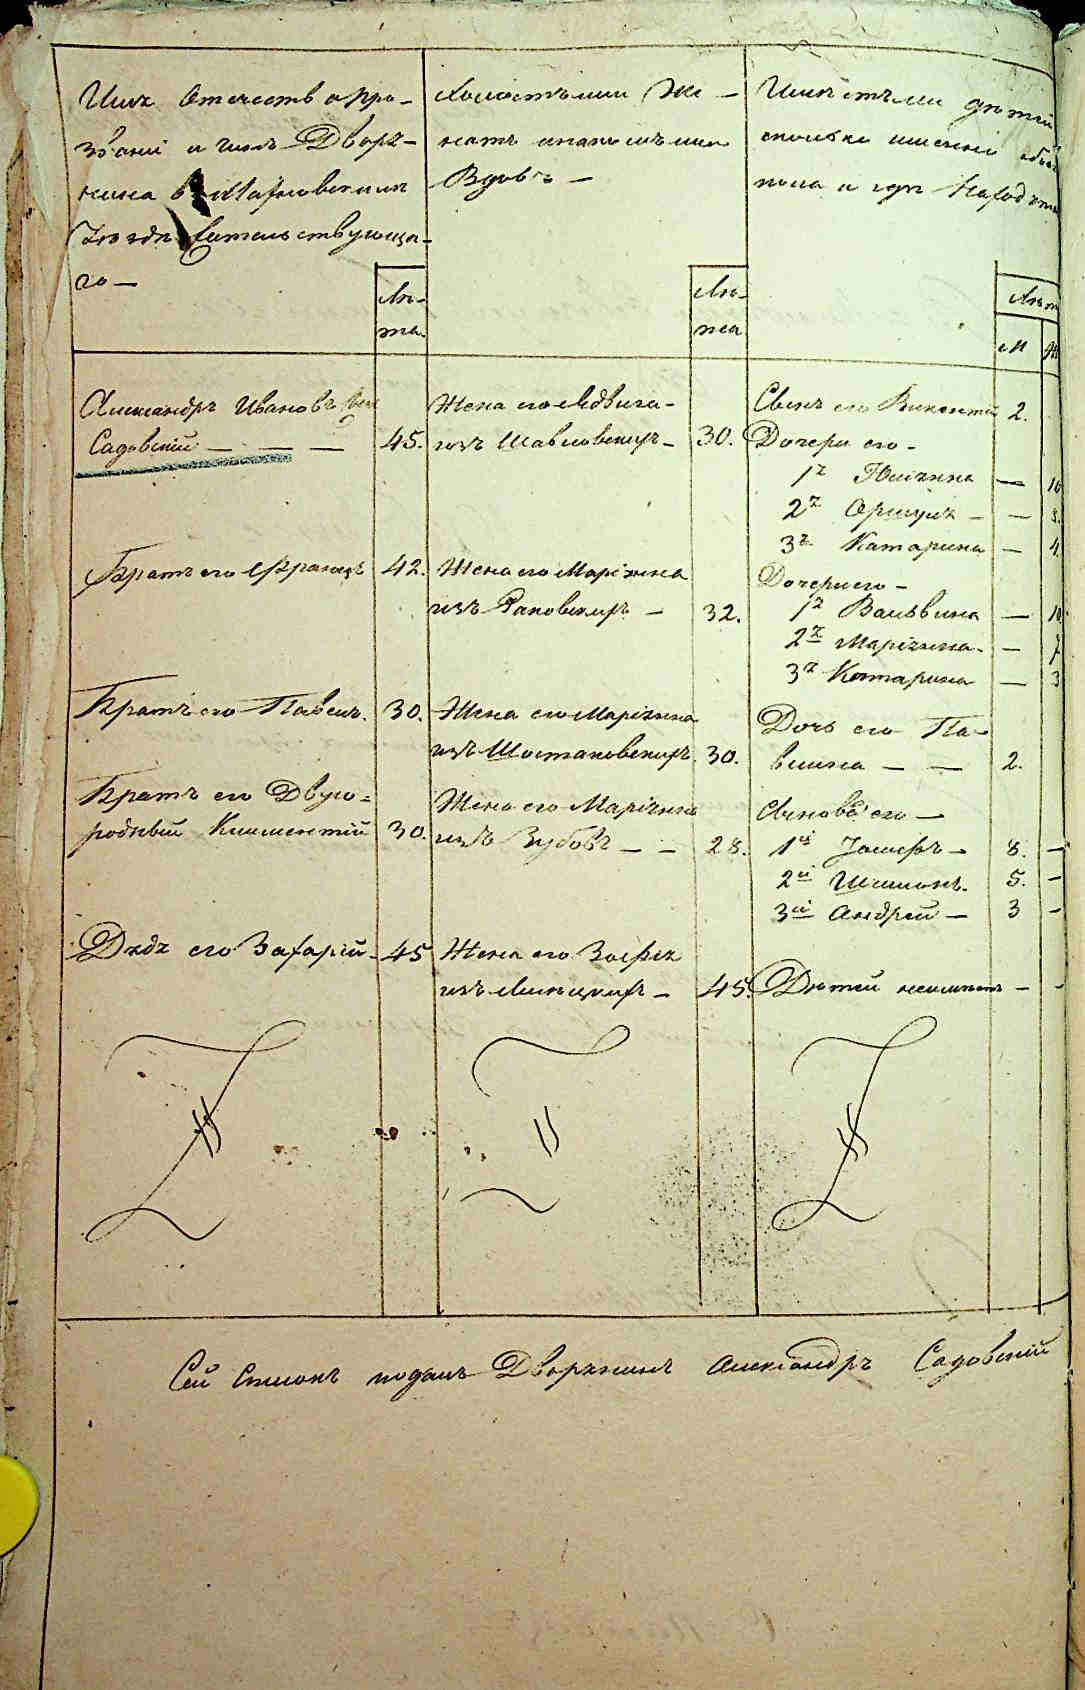 Имя Отчество и про-
званіе и чинъ Дворя-
нина въ Махновскомъ
Уездѣ жительствующа-
го —
Лѣ-
та.
Холостъ или Же-
натъ и на комъ или
Вдовъ —
Лѣ-
та
Имѣетъ ли дѣтей
сколько имянно обоего
пола и гдѣ находятся
Лѣта
М
Ж
Александръ Ивановъ сынъ
Садовскій — — — 45.
Жена его Ядвига
изъ Шавловскихъ — 30.
Сынъ его Викентій 2.
Дочери его —
1я Юлiянна — 10
2я Оршуля — — 8.
3я Катарина — 4
Братъ его Францъ 42.
Жена его Маріянна
изъ Раковскихъ — 32.
Дочери его —
1я Вальвина — 10
2я Маріянна — 7
3я Катарина — 3
Братъ его Павелъ. 30.
Жена его Маріянна
изъ Шостаковскихъ 30.
Дочь его Па-
влина — — 2.
Братъ его Двую-
родный Климентій 30.
Жена его Маріянна
изъ Зубовъ — — 28.
Сыновья его —
1й Іосифъ — 8. —
2й Шимонъ. 5. —
3й Андрей — 3 —
Дядя его Захарій — 45
Жена его Зофія
изъ Линицкихъ — 45.
Дѣтей неимѣетъ — —
Сей Списокъ подалъ Дворянинъ Александръ Садовскій